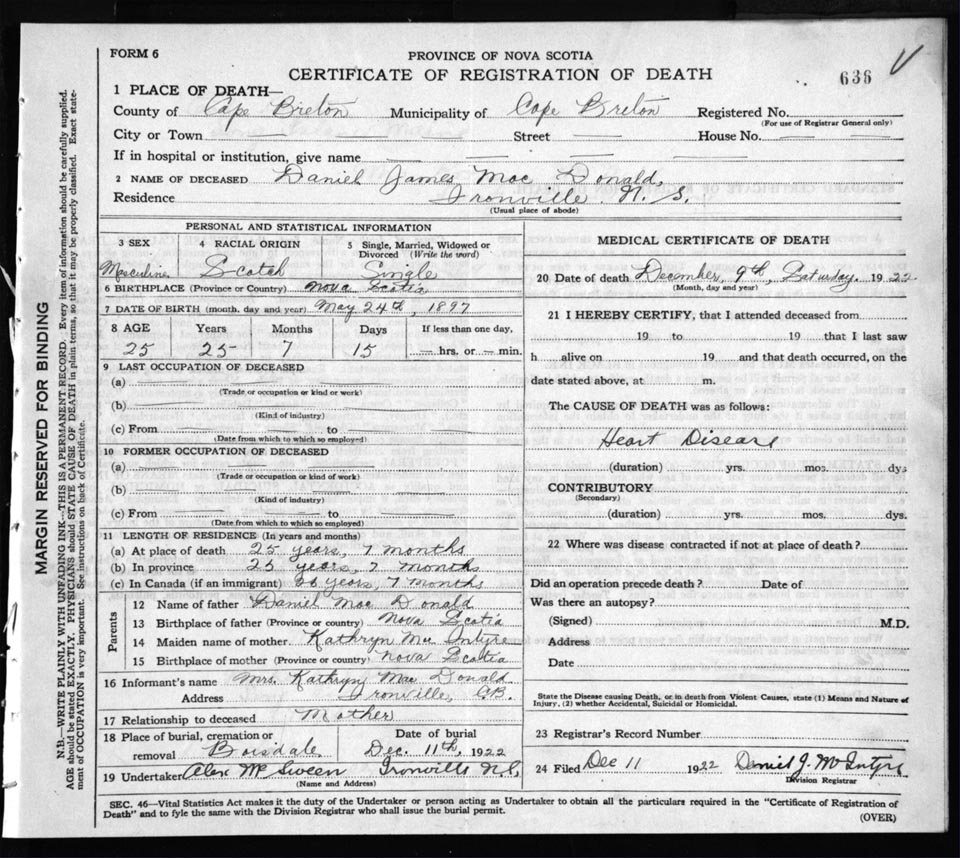 FORM 6
PROVINCE OF NOVA SCOTIA
CERTIFICATE OF REGISTRATION OF DEATH
636
1 PLACE OF DEATH—
County of Cape Breton Municipality of Cape Breton Registered No.
(For use of Registrar General only)
City or Town — Street — House No. —
If in hospital or institution, give name — — — —
2 NAME OF DECEASED Daniel James Mac Donald,
Residence Ironville. N. S.
(Usual place of abode)
PERSONAL AND STATISTICAL INFORMATION
3 SEX 4 RACIAL ORIGIN 5 Single, Married, Widowed or Divorced (Write the word)
Masculine Scotch Single
6 BIRTHPLACE (Province or Country) Nova Scotia
7 DATE OF BIRTH (month, day and year) May 24th, 1897
8 AGE Years Months Days If less than one day,
25 25 7 15 — hrs. or — min.
9 LAST OCCUPATION OF DECEASED
(a) — — —
(Trade or occupation or kind or work)
(b) — — —
(Kind of industry)
(c) From — to —
(Date from which to which so employed)
10 FORMER OCCUPATION OF DECEASED
(a) — — —
(Trade or occupation or kind of work)
(b) — — —
(Kind of industry)
(c) From — to —
(Date from which to which so employed)
11 LENGTH OF RESIDENCE (In years and months)
(a) At place of death 25 years, 7 months
(b) In province 25 years, 7 months
(c) In Canada (if an immigrant) years, 7 months
Parents
12 Name of father Daniel Mac Donald
13 Birthplace of father (Province or country) Nova Scotia
14 Maiden name of mother Kathryn Mac Intyre
15 Birthplace of mother (Province or country) Nova Scotia
16 Informant's name Mrs. Kathryn Mac Donald
Address Ironville, C.B.
17 Relationship to deceased Mother
18 Place of burial, cremation or removal Boisdale
Date of burial
Dec. 11th, 1922
19 Undertaker Alex McSween Ironville N.S.
(Name and Address)
MEDICAL CERTIFICATE OF DEATH
20 Date of death December, 9th, Saturday. 1922
(Month, day and year)
21 I HEREBY CERTIFY, that I attended deceased from
19 to 19 that I last saw
h alive on 19 and that death occurred, on the
date stated above, at m.
The CAUSE OF DEATH was as follows:
Heart Disease
(duration) yrs. mos. dys
CONTRIBUTORY
(Secondary)
(duration) yrs. mos. dys.
22 Where was disease contracted if not at place of death?
Did an operation precede death? Date of
Was there an autopsy?
(Signed) M.D.
Address
Date
State the Disease causing Death, or in death from Violent Causes, state (1) Means and Nature of
Injury, (2) whether Accidental, Suicidal or Homicidal.
23 Registrar's Record Number
24 Filed Dec 11 1922 Daniel J. McIntyre
Division Registrar
SEC. 46—Vital Statistics Act makes it the duty of the Undertaker or person acting as Undertaker to obtain all the particulars required in the "Certificate of Registration of
Death" and to fyle the same with the Division Registrar who shall issue the burial permit.
(OVER)
MARGIN RESERVED FOR BINDING
N.B.—WRITE PLAINLY WITH UNFADING INK—THIS IS A PERMANENT RECORD. Every item of information should be carefully supplied.
AGE should be stated EXACTLY. PHYSICIANS should STATE CAUSE OF DEATH in plain terms, so that it may be properly classified. Exact state-
ment of OCCUPATION is very important. See instructions on back of Certificate.